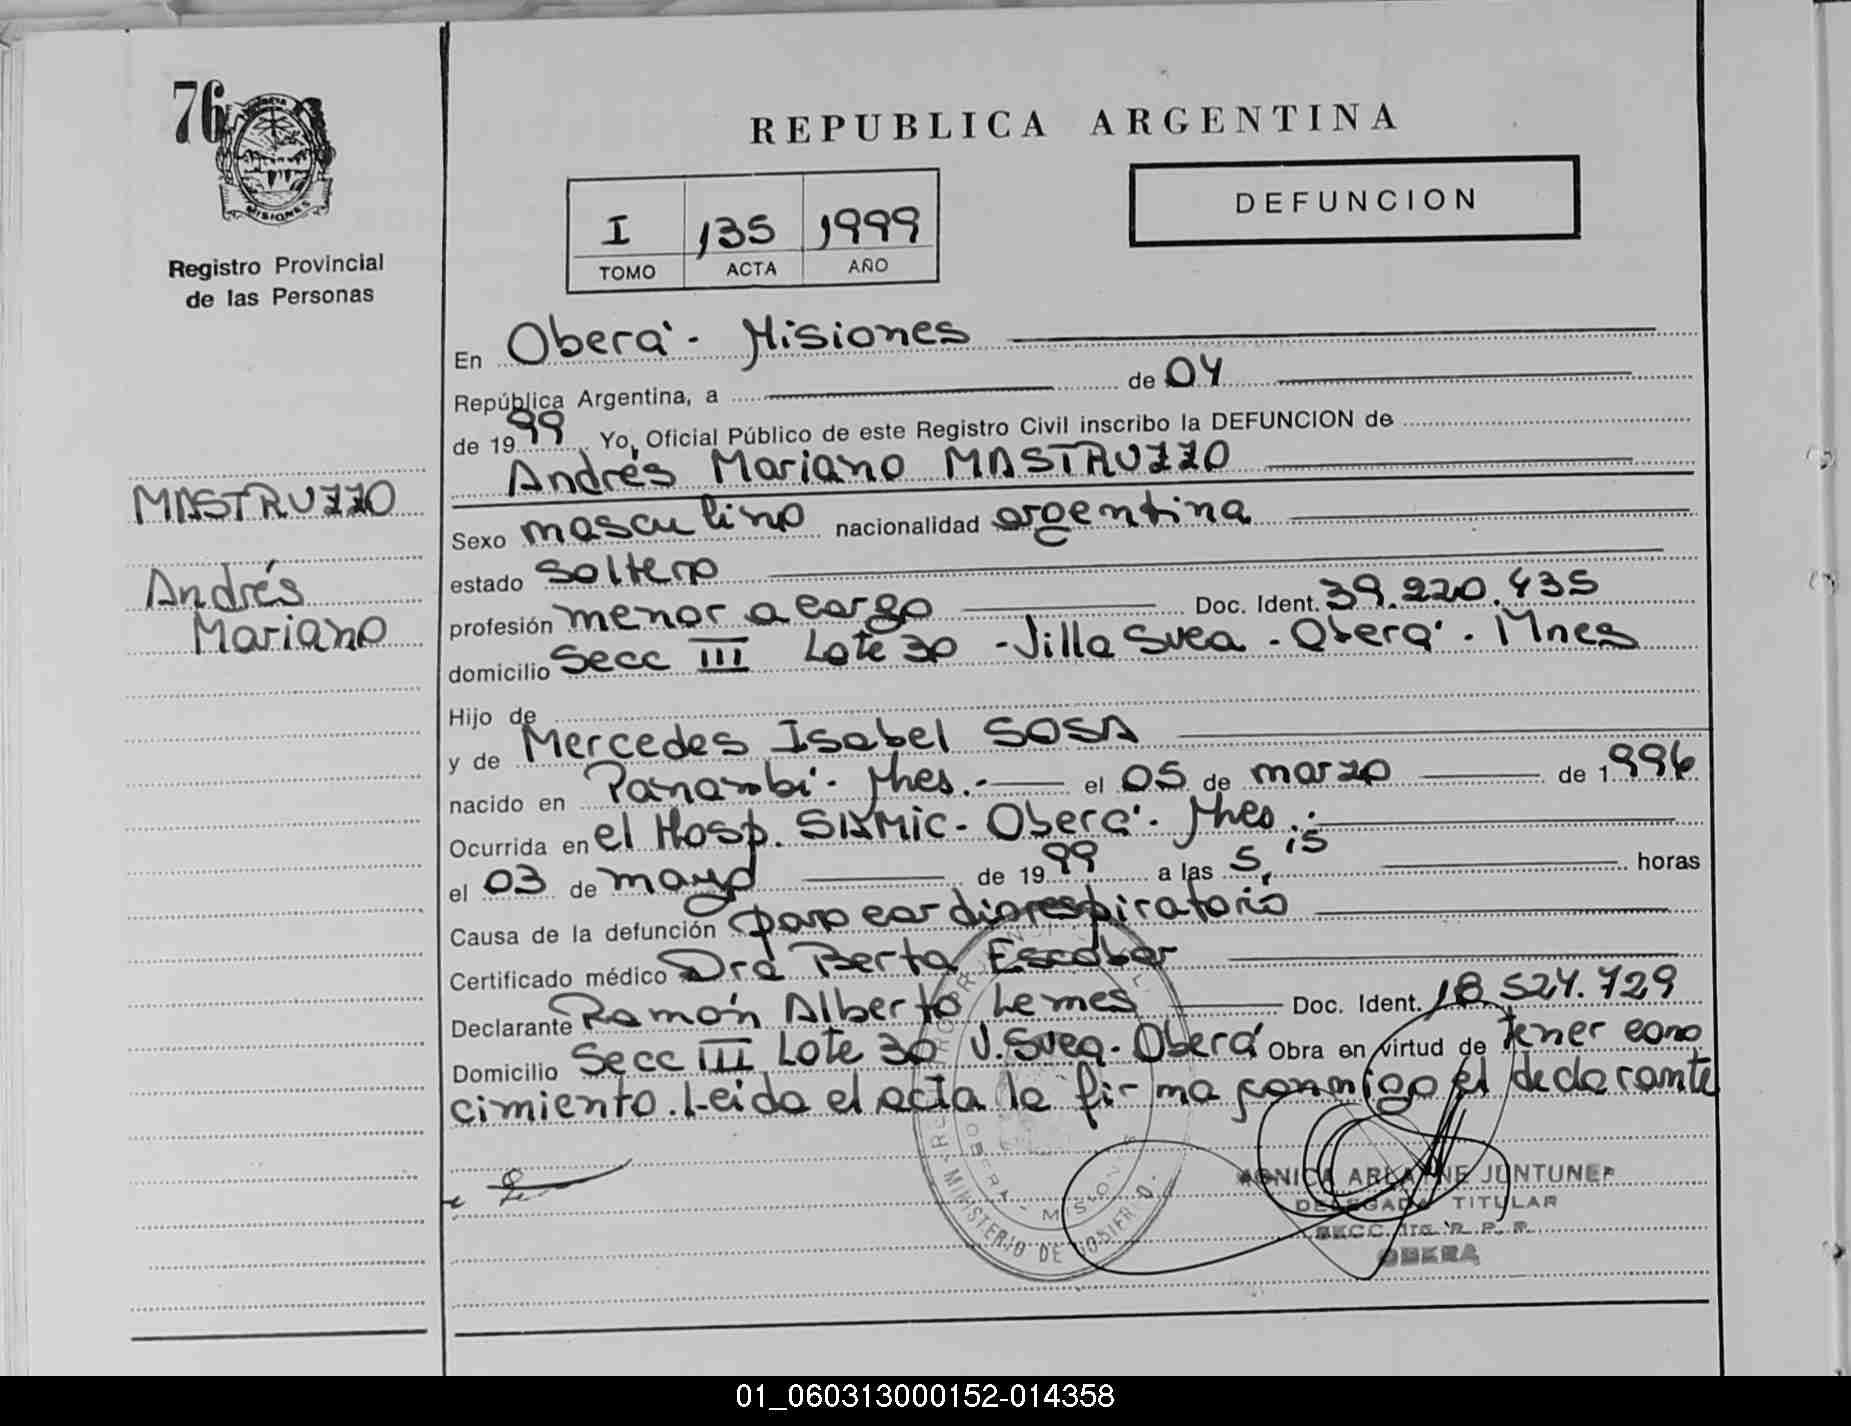 76
MISIONES
Registro Provincial
de las Personas
MASTRUZZO
Andrés
Mariano
REPUBLICA ARGENTINA
I 135 1999
TOMO ACTA AÑO
DEFUNCION
En Oberá - Misiones
República Argentina, a de 04
de 1999 Yo, Oficial Público de este Registro Civil inscribo la DEFUNCION de
Andrés Mariano MASTRUZZO
Sexo masculino nacionalidad argentina
estado soltero
profesión menor a cargo Doc. Ident. 39.220.435
domicilio Secc III Lote 30 - Villa Svea - Oberá - Mnes
Hijo de
y de Mercedes Isabel SOSA
nacido en Panambí - Mnes. - el 05 de marzo de 1996
Ocurrida en el Hosp. SAMIC - Oberá - Mnes. -
el 03 de mayo de 1999 a las 5,15 horas
Causa de la defunción paro cardiorespiratorio
Certificado médico Dra Berta Escobar
Declarante Ramón Alberto Lemes Doc. Ident. 18.524.729
Domicilio Secc III Lote 30 V. Svea - Oberá Obra en virtud de tener cono
cimiento. Leida el acta la firma conmigo el declarante
OBERA - MISIONES
MINISTERIO DE GOBIERNO
MONICA ARIANNE JUNTUNEN
DELEGADA TITULAR
SECC. 1ra. R. P. P.
OBERA
01_060313000152-014358